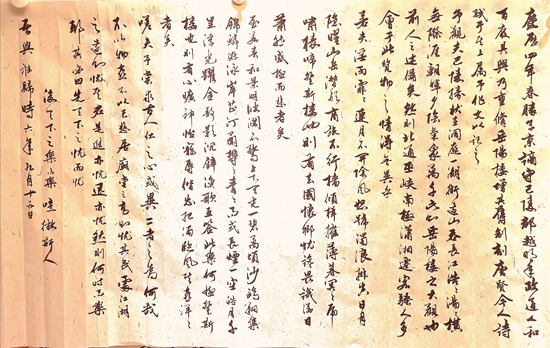 慶歷四年春滕子京謫守巴陵郡越明年政通人和
百廢具興乃重修岳陽樓增其舊制刻唐賢今人詩
賦于其上屬予作文以記之
予觀夫巴陵勝狀在洞庭一湖銜遠山吞長江浩浩湯湯橫
無際涯朝暉夕陰氣象萬千此則岳陽樓之大觀也
前人之述備矣然則北通巫峽南極瀟湘遷客騷人多
會于此覽物之情得無異乎
若夫霪雨霏霏連月不開陰風怒號濁浪排空日月
隱曜山岳潛形商旅不行檣傾楫摧薄暮冥冥虎
嘯猿啼登斯樓也則有去國懷鄉憂讒畏譏滿目
蕭然感極而悲者矣
至若春和景明波瀾不驚上下天光一碧萬頃沙鷗翔集
錦鱗游泳岸芷汀蘭鬱鬱青青而或長煙一空皓月千
里浮光躍金靜影沉璧漁歌互答此樂何極登斯
樓也則有心曠神怡寵辱偕忘把酒臨風其喜洋洋
者矣
嗟夫予嘗求古仁人之心或異二者之為何哉
不以物喜不以己悲居廟堂之高則憂其民處江湖
之遠則憂其君是進亦憂退亦憂然則何時而樂
耶其必曰先天下之憂而憂
後天下之樂而樂噫微斯人
吾與誰歸時六年九月十五日